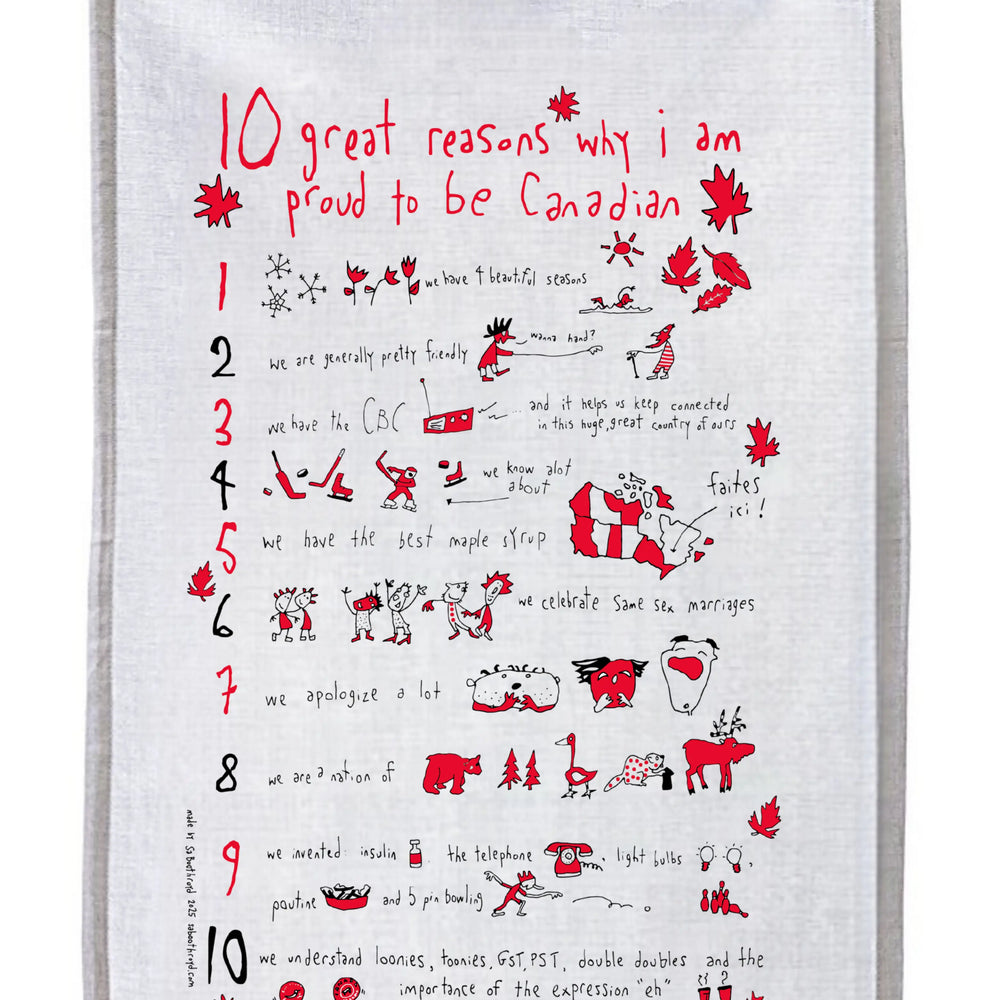 10 great reasons why i am
proud to be Canadian
1 we have 4 beautiful seasons
2 we are generally pretty friendly
wanna hand?
3 we have the CBC ... and it helps us keep connected
in this huge, great country of ours
4 we know alot
about
faites
ici!
5 we have the best maple syrup
6 we celebrate same sex marriages
7 we apologize a lot
8 we are a nation of
9 we invented: insulin, the telephone, light bulbs,
poutine and 5 pin bowling
10 we understand loonies, toonies, GST, PST, double doubles and the
importance of the expression "eh"
made by Sa Boothroyd 2025 saboothroyd.com